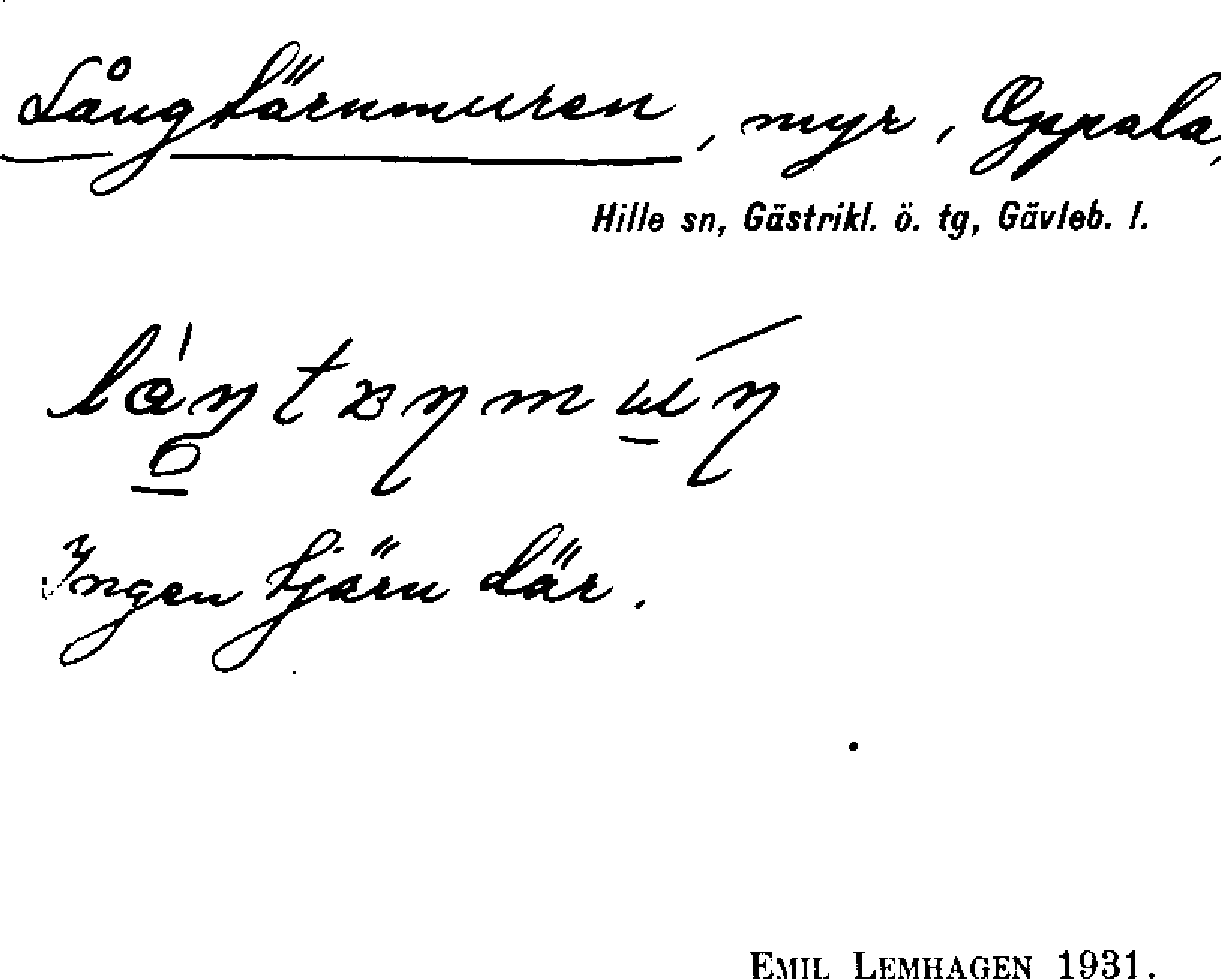 Långtärnmuren, myr, Oppala,
Hille sn, Gästrikl. ö. tg, Gävleb. l.
Ingen tjärn där.
EMIL LEMHAGEN 1931.